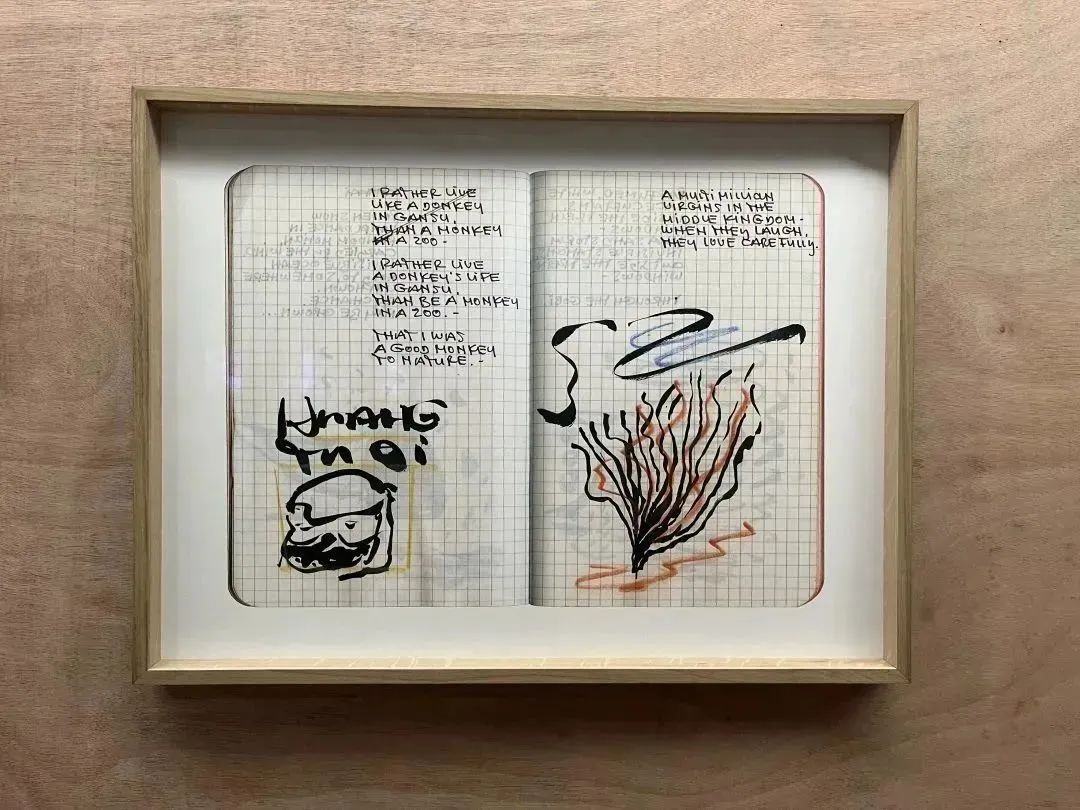 I RATHER LIVE
LIKE A DONKEY
IN GANSU.
THAN A MONKEY
A ZOO -
I RATHER LIVE
A DONKEY'S LIFE
IN GANSU.
THAN BE A MONKEY
IN A ZOO.-
THAT I WAS
A GOOD MONKEY
TO NATURE.-
HUANG
A MULTI MILLION
VIRGINS IN THE
MIDDLE KINGDOM -
WHEN THEY LAUGH,
THEY LOVE CAREFULLY.